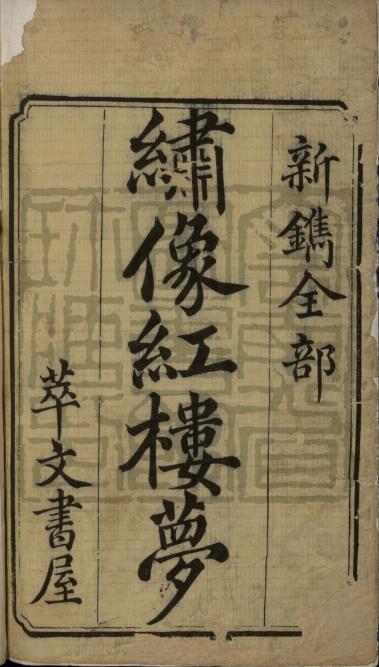 新鐫全部
繡像紅樓夢
萃文書屋